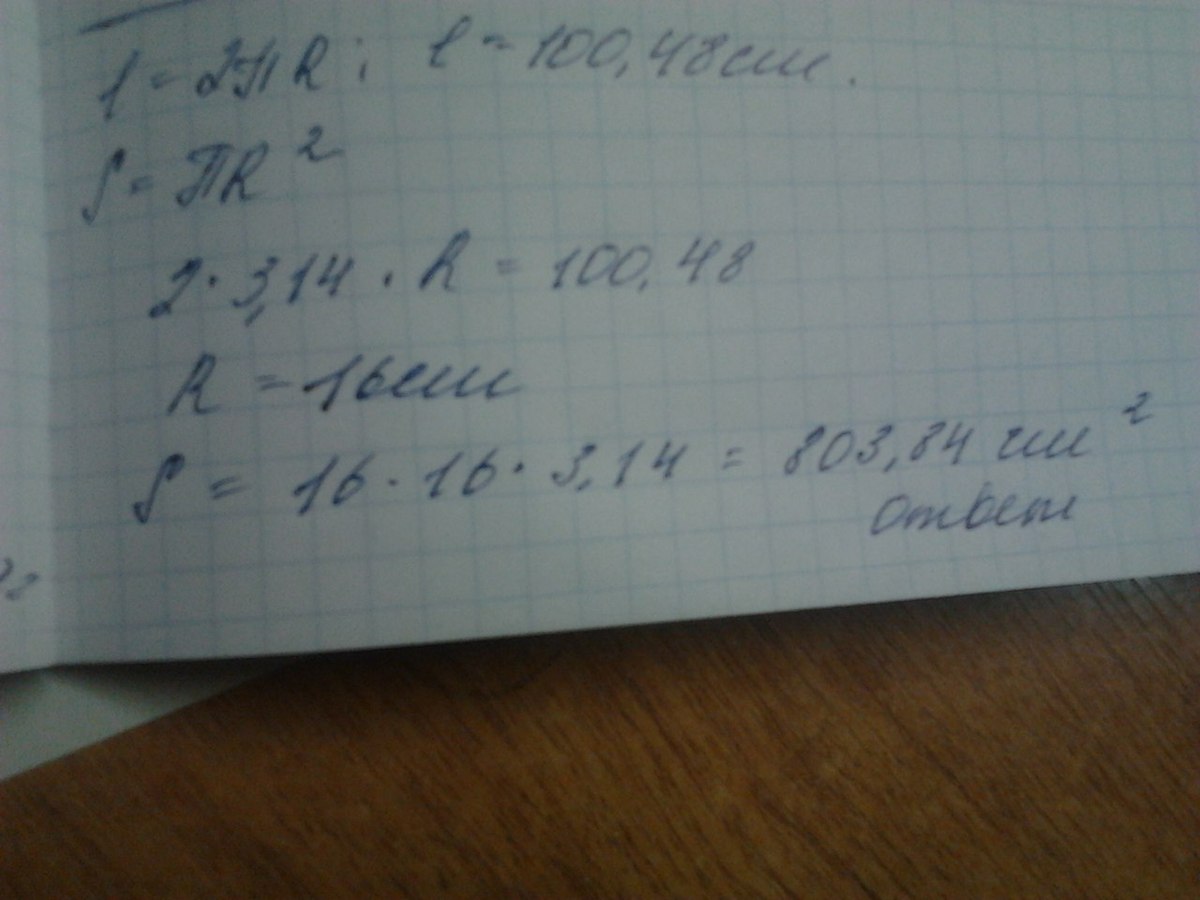 l = 2πR; l = 100,48 см.
S = πR²
2 · 3,14 · R = 100,48
R = 16 см
S = 16 · 16 · 3,14 = 803,84 см²
ответ